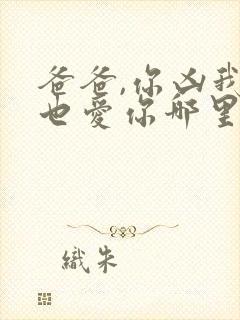 爸爸,你凶我
也爱你那里
織朱